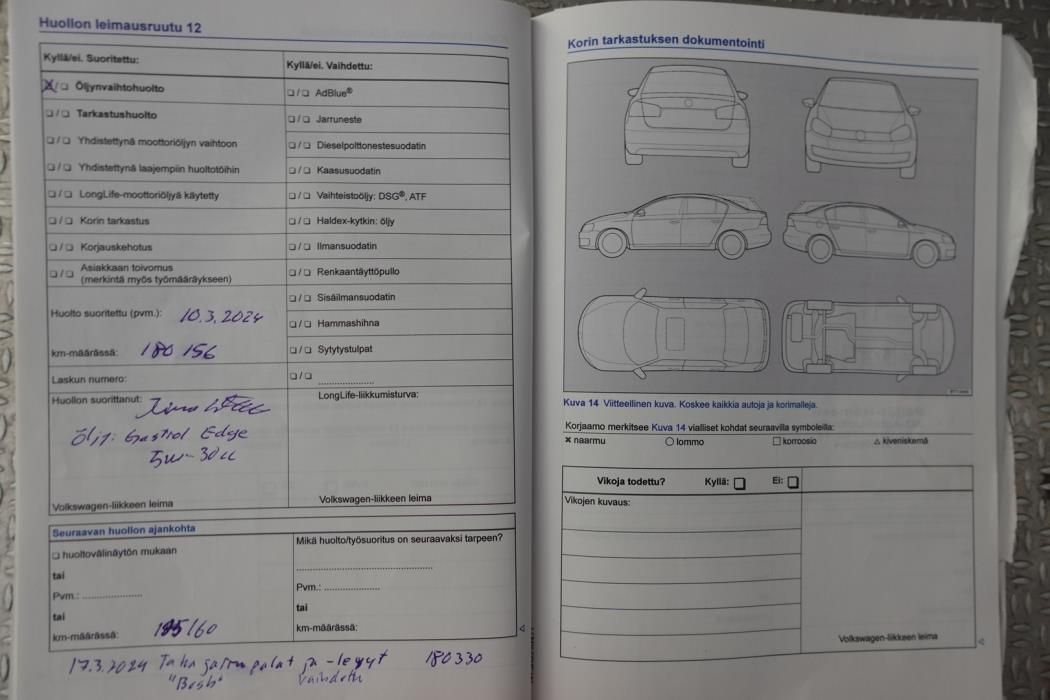 Huollon leimausruutu 12
Kyllä/ei. Suoritettu:
X/❏ Öljynvaihtohuolto
❏/❏ Tarkastushuolto
❏/❏ Yhdistettynä moottoriöljyn vaihtoon
❏/❏ Yhdistettynä laajempiin huoltotöihin
❏/❏ LongLife-moottoriöljyä käytetty
❏/❏ Korin tarkastus
❏/❏ Korjauskehotus
❏/❏ Asiakkaan toivomus
(merkintä myös työmääräykseen)
Huolto suoritettu (pvm.): 10.3.2024
km-määrässä: 180 156
Laskun numero:
Huollon suorittanut:
Öljy: Castrol Edge
5w-30LL
Volkswagen-liikkeen leima
Kyllä/ei. Vaihdettu:
❏/❏ AdBlue®
❏/❏ Jarruneste
❏/❏ Dieselpolttonestesuodatin
❏/❏ Kaasusuodatin
❏/❏ Vaihteistoöljy: DSG®, ATF
❏/❏ Haldex-kytkin: öljy
❏/❏ Ilmansuodatin
❏/❏ Renkaantäyttöpullo
❏/❏ Sisäilmansuodatin
❏/❏ Hammashihna
❏/❏ Sytytystulpat
❏/❏ .....................
LongLife-liikkumisturva:
Volkswagen-liikkeen leima
Seuraavan huollon ajankohta
❏ huoltovälinäytön mukaan
tai
Pvm.: .....................
tai
km-määrässä: 195160
Mikä huolto/työsuoritus on seuraavaksi tarpeen?
.....................
Pvm.: .....................
tai
km-määrässä:
17.3.2024 Taka jarrupalat ja -levyt 180330
"Bosh" vaihdettu
Korin tarkastuksen dokumentointi
Kuva 14 Viitteellinen kuva. Koskee kaikkia autoja ja korimalleja.
Korjaamo merkitsee Kuva 14 vialliset kohdat seuraavilla symboleilla:
✖ naarmu ○ lommo □ korroosio △ kiveniskemä
Vikoja todettu? Kyllä: ❏ Ei: ❏
Vikojen kuvaus:
Volkswagen-liikkeen leima